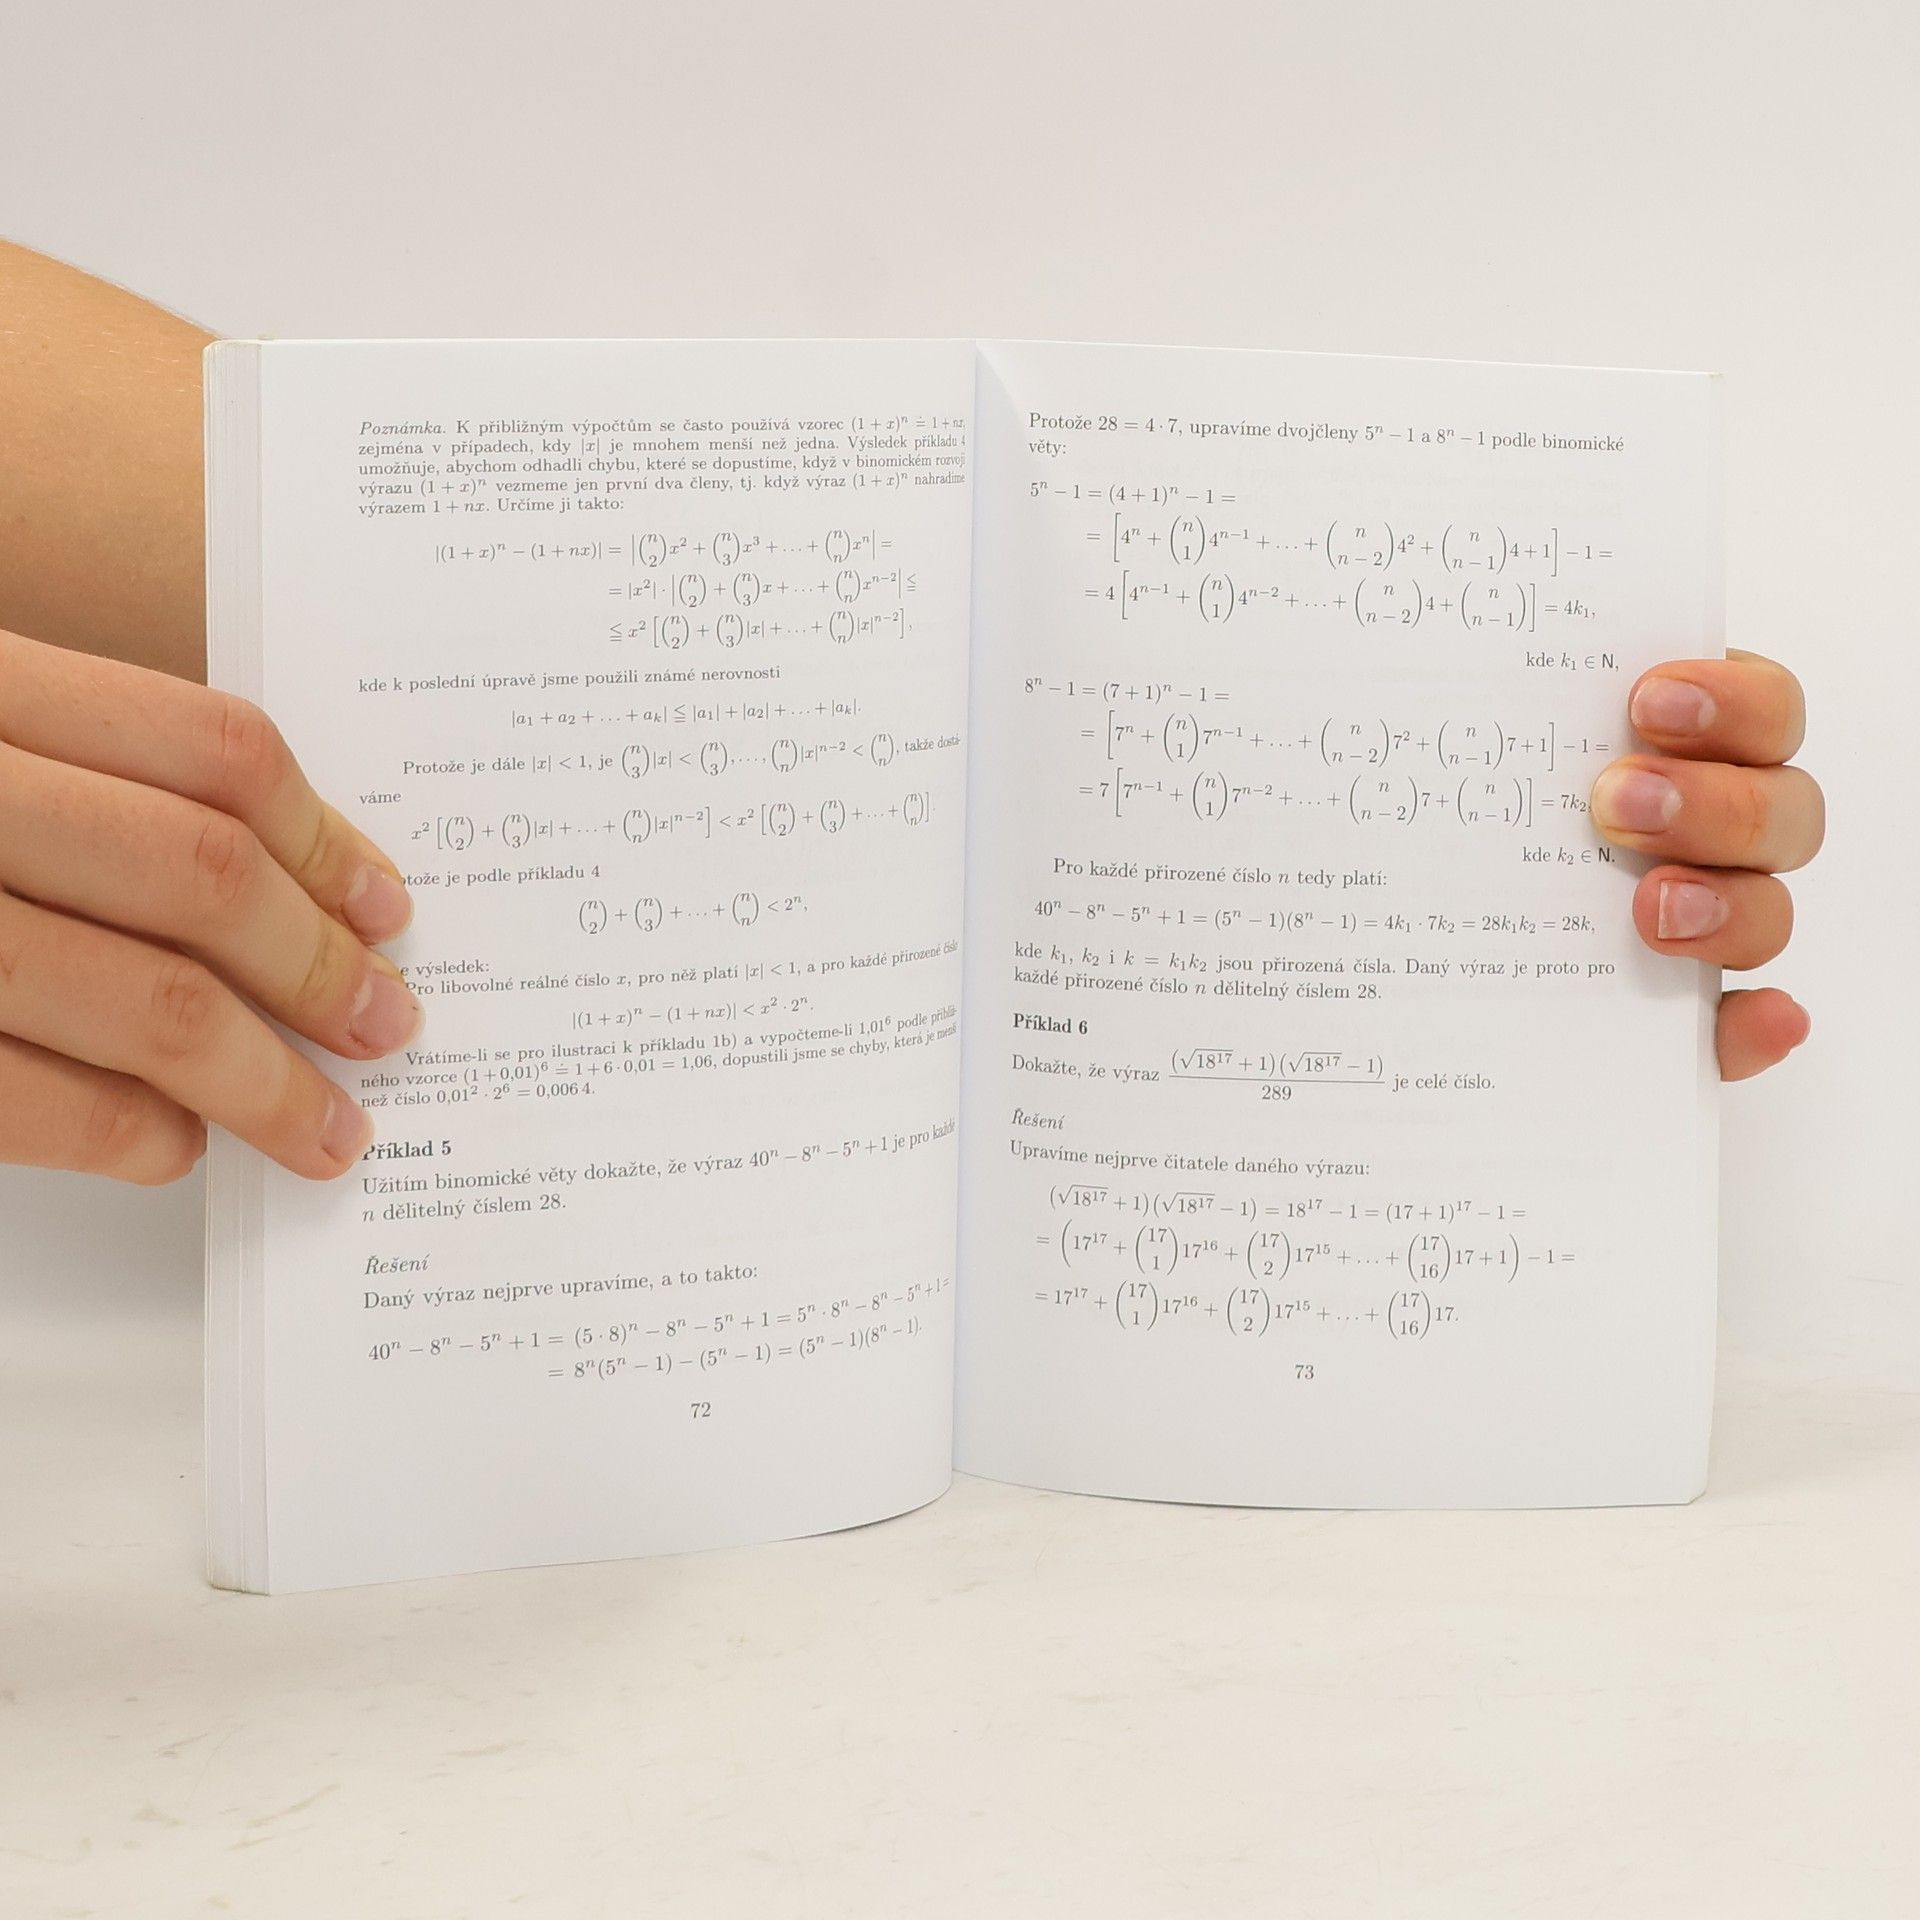 Poznámka. K přibližným výpočtům se často používá vzorec (1 + x)ⁿ ≐ 1 + nx,
zejména v případech, kdy |x| je mnohem menší než jedna. Výsledek příkladu 4
umožňuje, abychom odhadli chybu, které se dopustíme, když v binomickém rozvoji
výrazu (1 + x)ⁿ vezmeme jen první dva členy, tj. když výraz (1 + x)ⁿ nahradíme
výrazem 1 + nx. Určíme ji takto:
|(1 + x)ⁿ − (1 + nx)| = |(n 2)x² + (n 3)x³ + … + (n n)xⁿ| =
= |x²| · |(n 2) + (n 3)x + … + (n n)xⁿ⁻²| ≦
≦ x² [(n 2) + (n 3)|x| + … + (n n)|x|ⁿ⁻²],
kde k poslední úpravě jsme použili známé nerovnosti
|a₁ + a₂ + … + aₖ| ≦ |a₁| + |a₂| + … + |aₖ|.
Protože je dále |x| < 1, je (n 3)|x| < (n 3), …, (n n)|x|ⁿ⁻² < (n n), takže dostá-
váme
x² [(n 2) + (n 3)|x| + … + (n n)|x|ⁿ⁻²] < x² [(n 2) + (n 3) + … + (n n)].
tože je podle příkladu 4
(n 2) + (n 3) + … + (n n) < 2ⁿ,
e výsledek:
Pro libovolné reálné číslo x, pro něž platí |x| < 1, a pro každé přirozené číslo
|(1 + x)ⁿ − (1 + nx)| < x² · 2ⁿ.
Vrátíme-li se pro ilustraci k příkladu 1b) a vypočteme-li 1,01⁶ podle přibliž-
ného vzorce (1 + 0,01)⁶ ≐ 1 + 6 · 0,01 = 1,06, dopustili jsme se chyby, která je menší
než číslo 0,01² · 2⁶ = 0,006 4.
Příklad 5
Užitím binomické věty dokažte, že výraz 40ⁿ − 8ⁿ − 5ⁿ + 1 je pro každé
n dělitelný číslem 28.
Řešení
Daný výraz nejprve upravíme, a to takto:
40ⁿ − 8ⁿ − 5ⁿ + 1 = (5 · 8)ⁿ − 8ⁿ − 5ⁿ + 1 = 5ⁿ · 8ⁿ − 8ⁿ − 5ⁿ + 1 =
= 8ⁿ(5ⁿ − 1) − (5ⁿ − 1) = (5ⁿ − 1)(8ⁿ − 1).
72
Protože 28 = 4 · 7, upravíme dvojčleny 5ⁿ − 1 a 8ⁿ − 1 podle binomické
věty:
5ⁿ − 1 = (4 + 1)ⁿ − 1 =
= [4ⁿ + (n 1)4ⁿ⁻¹ + … + (n n − 2)4² + (n n − 1)4 + 1] − 1 =
= 4 [4ⁿ⁻¹ + (n 1)4ⁿ⁻² + … + (n n − 2)4 + (n n − 1)] = 4k₁,
kde k₁ ∈ N,
8ⁿ − 1 = (7 + 1)ⁿ − 1 =
= [7ⁿ + (n 1)7ⁿ⁻¹ + … + (n n − 2)7² + (n n − 1)7 + 1] − 1 =
= 7 [7ⁿ⁻¹ + (n 1)7ⁿ⁻² + … + (n n − 2)7 + (n n − 1)] = 7k₂,
kde k₂ ∈ N.
Pro každé přirozené číslo n tedy platí:
40ⁿ − 8ⁿ − 5ⁿ + 1 = (5ⁿ − 1)(8ⁿ − 1) = 4k₁ · 7k₂ = 28k₁k₂ = 28k,
kde k₁, k₂ i k = k₁k₂ jsou přirozená čísla. Daný výraz je proto pro
každé přirozené číslo n dělitelný číslem 28.
Příklad 6
Dokažte, že výraz (√18¹⁷ + 1)(√18¹⁷ − 1) / 289 je celé číslo.
Řešení
Upravíme nejprve čitatele daného výrazu:
(√18¹⁷ + 1)(√18¹⁷ − 1) = 18¹⁷ − 1 = (17 + 1)¹⁷ − 1 =
= (17¹⁷ + (17 1)17¹⁶ + (17 2)17¹⁵ + … + (17 16)17 + 1) − 1 =
= 17¹⁷ + (17 1)17¹⁶ + (17 2)17¹⁵ + … + (17 16)17.
73